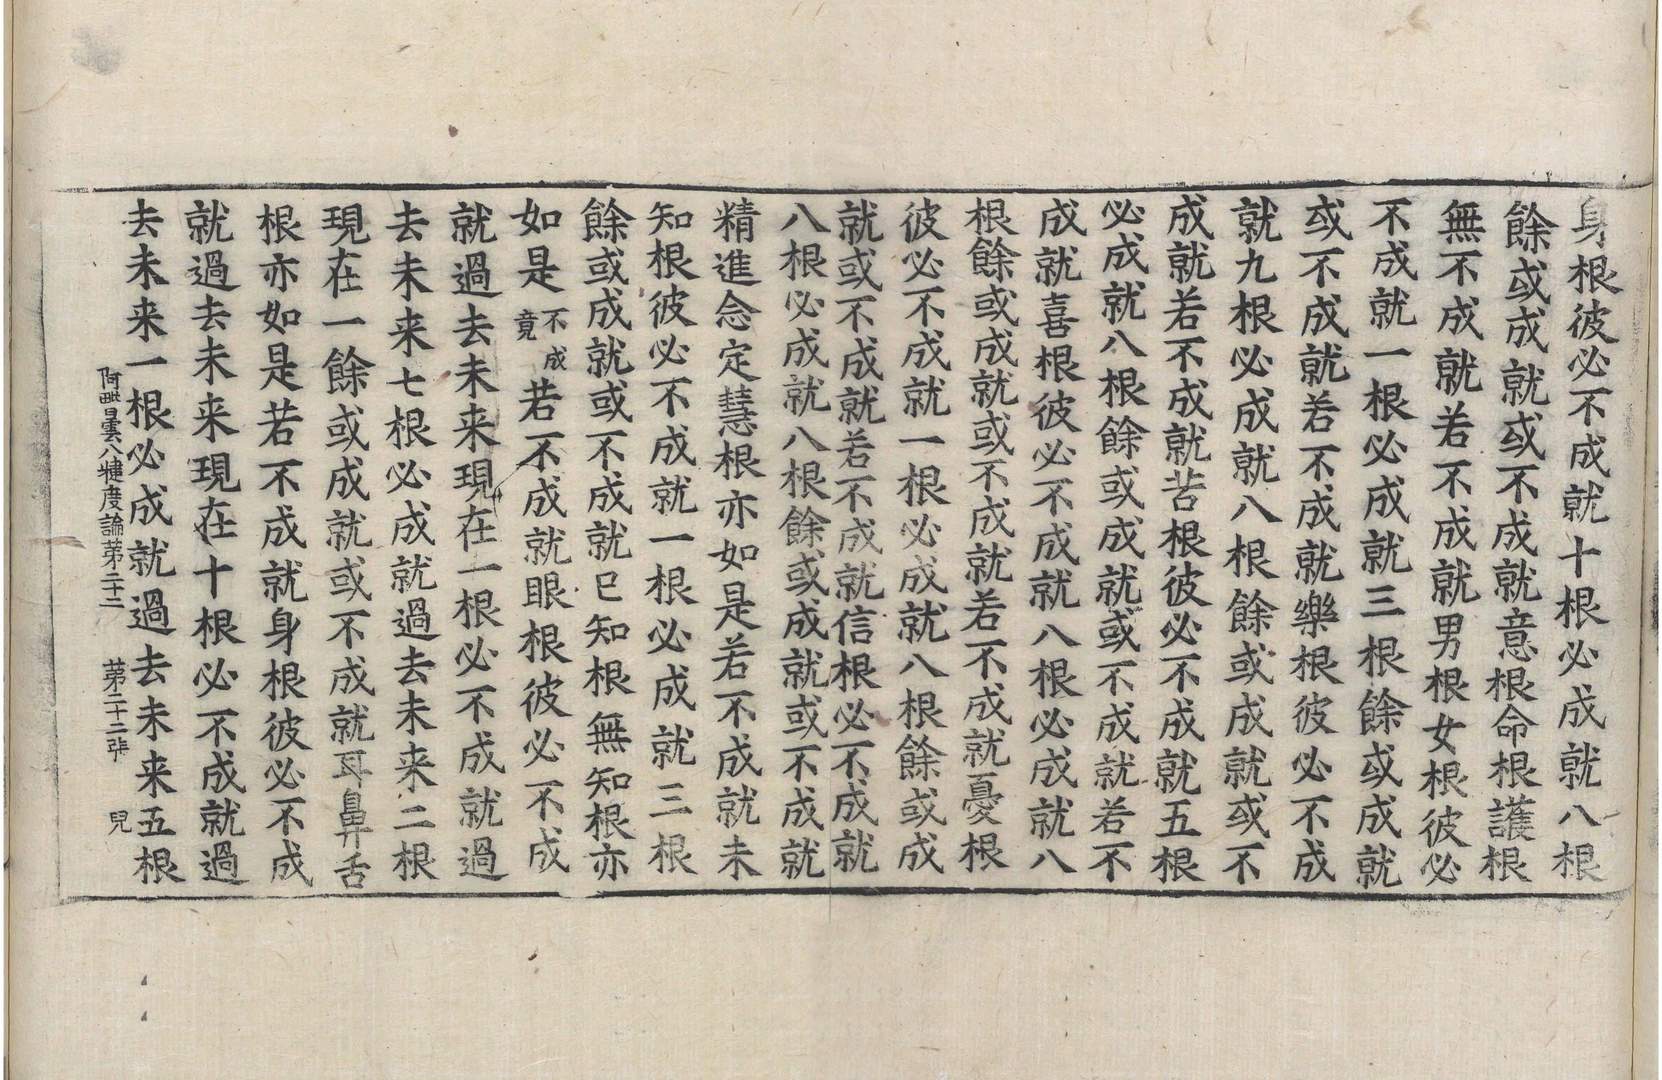 身根彼必不成就十根必成就八根
餘或成就或不成就意根命根護根
無不成就若不成就男根女根彼必
不成就一根必成就三根餘或成就
或不成就若不成就樂根彼必不成
就九根必成就八根餘或成就或不
成就若不成就苦根彼必不成就五根
必成就八根餘或成就或不成就若不
成就喜根彼必不成就八根必成就八
根餘或成就或不成就若不成就憂根
彼必不成就一根必成就八根餘或成
就或不成就若不成就信根必不成就
八根必成就八根餘或成就或不成就
精進念定慧根亦如是若不成就未
知根彼必不成就一根必成就三根
餘或成就或不成就已知根無知根亦
如是不成竟若不成就眼根彼必不成
就過去未来現在一根必不成就過
去未来七根必成就過去未来二根
現在一餘或成就或不成就耳鼻舌
根亦如是若不成就身根彼必不成
就過去未来現在十根必不成就過
去未来一根必成就過去未来五根
阿毗曇八犍度論第二十二 第二十二张 兒